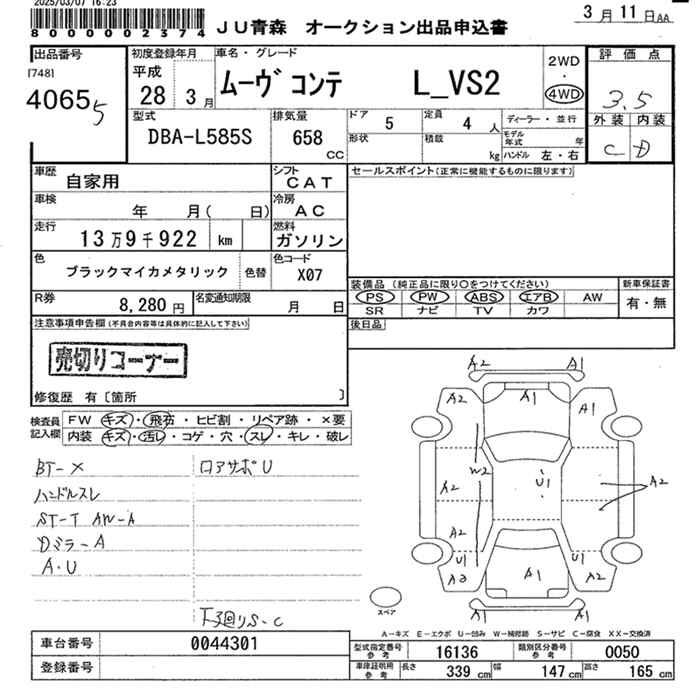 2025/03/07 16:23
8 0 0 0 0 0 2 3 7 4
JU青森 オークション出品申込書
3月11日AA
出品番号
[748]
4065 5
初度登録年月
平成
28 3月
車名・グレード
ムーヴ コンテ L_VS2
2WD
・
4WD
評価点
3.5
外装 内装
C D
型式
DBA-L585S
排気量
658 CC
ドア 5
定員 4 人
形状
積載 kg
ディーラー・並行
モデル年式 年
ハンドル 左・右
車歴
自家用
シフト
CAT
セールスポイント(正常に機能するものに限ります)
車検
年 月( 日)
冷房
AC
走行
13万9千922 km
燃料
ガソリン
色
ブラックマイカメタリック
色替
色コード
X07
装備品 (純正品に限り〇をつけてください)
PS PW ABS エアB AW
SR ナビ TV カワ
新車保証書
有・無
R券
8,280 円
名変通知期限
月 日
後日品
注意事項申告欄(不具合内容等は具体的に記入して下さい)
売切りコーナー
修復歴 有〔箇所 〕
検査員記入欄
FW キズ・飛石・ヒビ割・リペア跡・×要
内装 キズ・汚レ・コゲ・穴・スレ・キレ・破レ
BT-×
ロアサポU
ハンドルスレ
ST-T AW-A
Dミラ-A
A・U
下廻りS-C
A2 A1
A2 A1 A1
W2 U1
A2 A2
A2
U1 U1
A2 A1 A2
A1 A1
スペア
A-キズ E-エクボ U-凹み W-補修跡 S-サビ C-腐食 XX-交換済
車台番号
0044301
登録番号
型式指定番号 参考
16136
類別区分番号 参考
0050
車庫証明用 参考
長さ 339 cm
幅 147 cm
高さ 165 cm